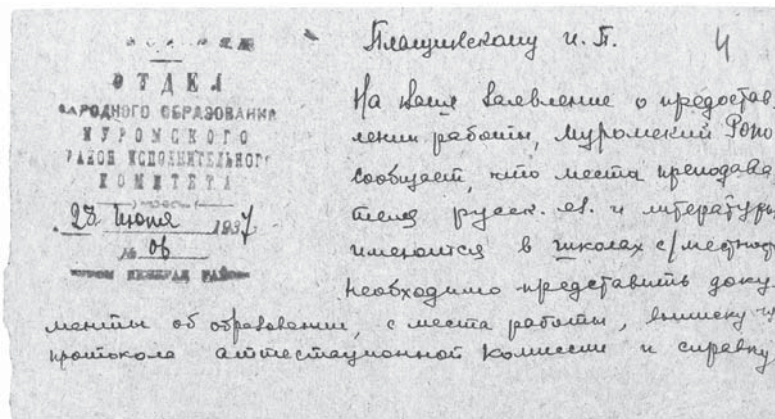 Плащинскому И. П.
4
ОТДЕЛ
НАРОДНОГО ОБРАЗОВАНИЯ
МУРОМСКОГО
РАЙОН ИСПОЛНИТЕЛЬНОГО
КОМИТЕТА
28 Июня 1937
№ об
На Ваше заявление о предостав
лении работы, Муромский Роно
сообщает, что места преподава
теля русск. яз. и литературы
имеются в школах с/местност
необходимо представить доку-
менты об образовании, с места работы, выписку из
протокола аттестационной комиссии и справку